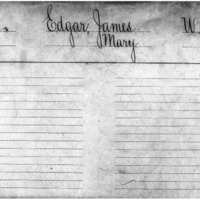 Edgar, James W
Mary